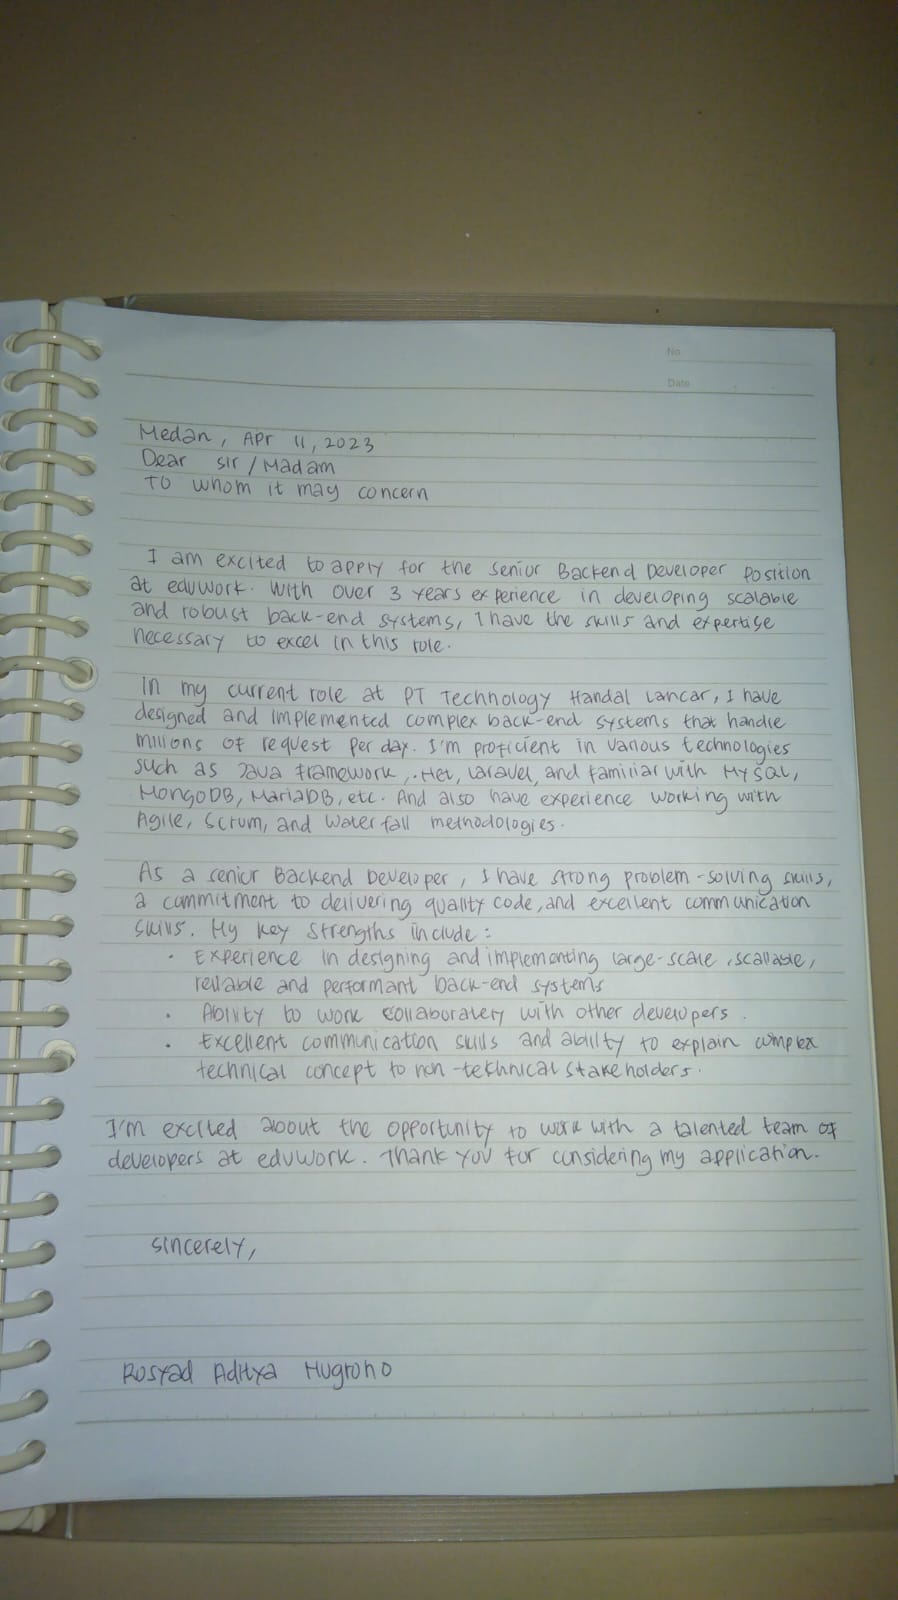 No
Date
Medan, Apr 11, 2023
Dear sir / Madam
To whom it may concern
I am excited to apply for the Senior Backend Developer Position
at eduwork. With over 3 years experience in developing scalable
and robust back-end systems, I have the skills and expertise
necessary to excel in this role.
In my current role at PT Technology Handal Lancar, I have
designed and implemented complex back-end systems that handle
millions of request per day. I'm proficient in various technologies
such as Java framework, .Net, Laravel, and familiar with MySQL,
MongoDB, MariaDB, etc. And also have experience working with
Agile, Scrum, and Waterfall methodologies.
As a senior Backend Developer, I have strong problem-solving skills,
a commitment to delivering quality code, and excellent communication
skills. My key strengths include:
• Experience in designing and implementing large-scale, scallable,
reliable and performant back-end systems
• Ability to work collaborately with other developers.
• Excellent communication skills and ability to explain complex
technical concept to non-tekhnical stakeholders.
I'm excited about the opportunity to work with a talented team of
developers at eduwork. Thank you for considering my application.
Sincerely,
Rosyad Aditya Nugroho